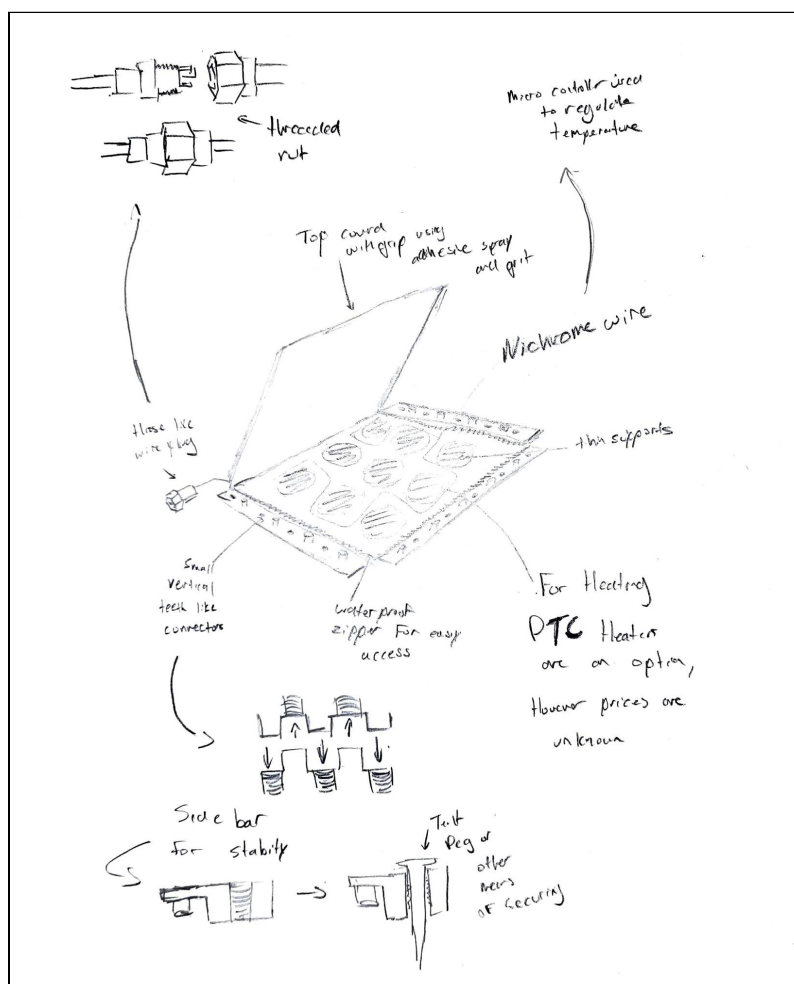 threaded
nut
Micro controller used
to regulate
temperature
Top
with grip using
adhesive spray
and grit
Nichrome wire
Hose like
wire plug
thin supports
Small
vertical
teeth like
connectors
waterproof
zipper For easy
access
For Heating
PTC Heaters
are an option,
However prices are
unknown
Side bar
for stabilty
Tent
Peg or
other
means
of securing